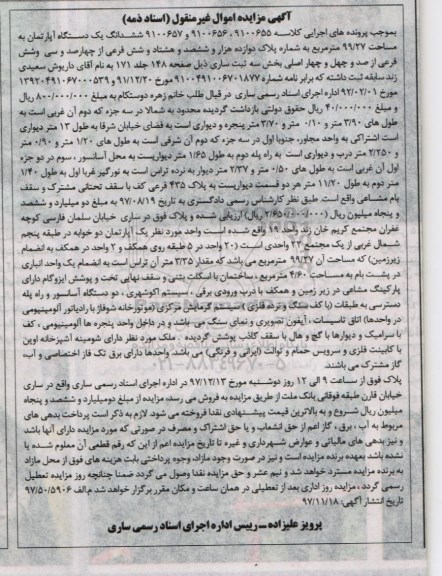 آگهی مزایده اموال غیرمنقول (اسناد ذمه)
بموجب پرونده های اجرایی کلاسه ۹۱۰۰۶۵۵ و ۹۱۰۰۶۵۶ و ۹۱۰۰۶۵۷ ششدانگ یک دستگاه آپارتمان به
مساحت ۹۹/۲۷ مترمربع به شماره پلاک دوازده هزار و ششصد و هشتاد و شش فرعی از چهارصد و سی وشش
فرعی از صد و چهل و چهار اصلی بخش سه ثبت ساری ذیل صفحه ۱۴۸ جلد ۱۷۱ به نام آقای داریوش سعیدی
زند سابقه ثبت داشته که برابر نامه شماره ۹۱۰۰۴۹۱۰۰۶۷۰۱۸۷۷ مورخ ۹۱/۱۲/۲۰ و ۱۳۹۲۰۴۹۱۰۶۷۰۰۰۵۳۹
مورخ ۹۲/۰۲/۰۱ اداره اجرای اسناد رسمی ساری در قبال طلب خانم زهره دوستکام به مبلغ ۸۰۰/۰۰۰/۰۰۰ ریال
و مبلغ ۴۰/۰۰۰/۰۰۰ ریال حقوق دولتی بازداشت گردیده محدود به شمالا در سه جزء که دوم آن غربی است به
طول های ۳/۹۰ متر و ۰/۱۰ متر و ۳/۷۰ متر پنجره و دیواری است به فضای خیابان شرقا به طول ۱۳ متر دیواری
است اشتراکی به واحد مجاور، جنوبا اول در سه جزء که دوم آن شرقی است به طول های ۱/۲۰ متر و ۰/۹۰ متر
و ۲/۲۵۰ متر درب و دیواری است به راه پله دوم به طول ۱/۶۵ متر دیواریست به محل آسانسور ، سوم در دو جزء
اول آن غربی است به طول های ۰/۵۰ متر و ۲/۳۷ متر دیوار به نرده تراس است به نورگیر غربا اول به طول ۱/۴۰
متر دوم به طول ۱۱/۲۰ متر هر دو قسمت دیواریست به پلاک ۴۳۵ فرعی کف با سقف تحتانی مشترک و سقف
بام مشاعی واقع است. طبق نظر کارشناس رسمی دادگستری به تاریخ ۹۷/۰۸/۱۹ به مبلغ دو میلیارد و ششصد
و پنجاه میلیون ریال (۲/۶۵۰/۰۰۰/۰۰۰ ریال) ارزیابی شده و پلاک فوق در ساری خیابان سلمان فارسی کوچه
غفران مجتمع کریم خان زند واحد ۱۹ واقع شده است واحد مورد نظر یک آپارتمان دو خوابه در طبقه پنجم
شمال غربی از یک مجتمع ۲۲ واحدی است (۲۰ واحد در ۵ طبقه روی همکف و ۲ واحد در همکف به انضمام
زیرزمین) که مساحت آن ۹۹/۲۷ مترمربع می باشد که مقدار ۳/۳۵ متر آن تراس است به انضمام یک واحد انباری
در پشت بام به مساحت ۴/۶۰ مترمربع ، ساختمان با اسکلت بتنی و سقف نهایی تخت و پوشش ایزوگام دارای
پارکینگ مشاعی در زیر زمین و همکف با درب ورودی برقی ، سیستم اکوشهری ، دو دستگاه آسانسور و راه پله
دسترسی به طبقات (با کف سنگ و نرده فلزی) سیستم گرمایش مرکزی (موتورخانه شوفاژ با رادیاتور آلومینیومی
در واحدها) اتاق تاسیسات ، آیفون تصویری و نمای سنگ می باشد. و در داخل واحد پنجره ها آلومینیومی ، کف
با سرامیک و دیوارها با گچ و هال با سقف کاذب پوشش گردیده . ملک مورد نظر دارای شومینه آشپزخانه اوپن
با کابینت فلزی و سرویس حمام و توالت (ایرانی و فرنگی) می باشد. واحدها دارای برق تک فاز اختصاصی و آب،
گاز مشترک می باشند
پلاک فوق از ساعت ۹ الی ۱۲ روز دوشنبه مورخ ۹۷/۱۲/۱۳ در اداره اجرای اسناد رسمی ساری واقع در ساری
خیابان قارن طبقه فوقانی بانک ملت از طریق مزایده به فروش می رسد، مزایده از مبلغ دومیلیارد و ششصد و پنجاه
میلیون ریال شروع و به بالاترین قیمت پیشنهادی نقدا فروخته می شود. لازم به ذکر است پرداخت بدهی های
مربوط به آب ، برق ، گاز اعم از حق انشعاب و یا حق اشتراک و مصرف در صورتی که مورد مزایده دارای آنها باشد
و نیز بدهی های مالیاتی و عوارض شهرداری و غیره تا تاریخ مزایده اعم از این که رقم قطعی آن معلوم شده یا
نشده باشد بعهده برنده مزایده است و نیز در صورت وجود مازاد، وجوه پرداختی بابت هزینه های فوق از محل مازاد
به برنده مزایده مسترد خواهد شد و نیم عشر و حق مزایده نقدا وصول می گردد. ضمنا چنانچه روز مزایده تعطیل
رسمی گردد ، مزایده روز اداری بعد از تعطیلی در همان ساعت و مکان مقرر برگزار خواهد شد. م/الف ۹۷/۵۰/۵۹۰۶
تاریخ انتشار آگهی: ۹۷/۱۱/۱۸
پرویز علیزاده – رییس اداره اجرای اسناد رسمی ساری